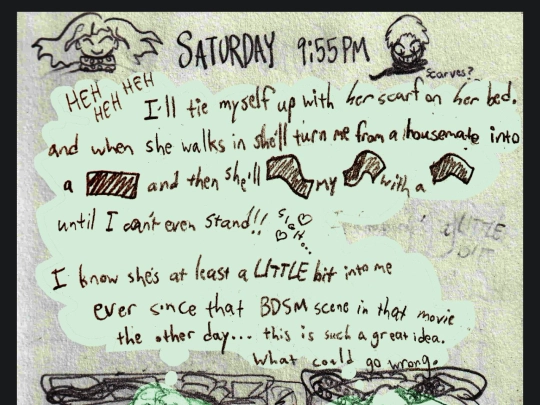 SATURDAY 9:55PM
Scarves?
HEH HEH HEH
I'll tie myself up with her scarf on her bed.
and when she walks in she'll turn me from a housemate into
a and then she'll my with a
until I can't even stand!!
SIGH..
LITTLE
BIT
I know she's at least a LITTLE bit into me
ever since that BDSM scene in that movie
the other day... this is such a great idea.
What could go wrong.